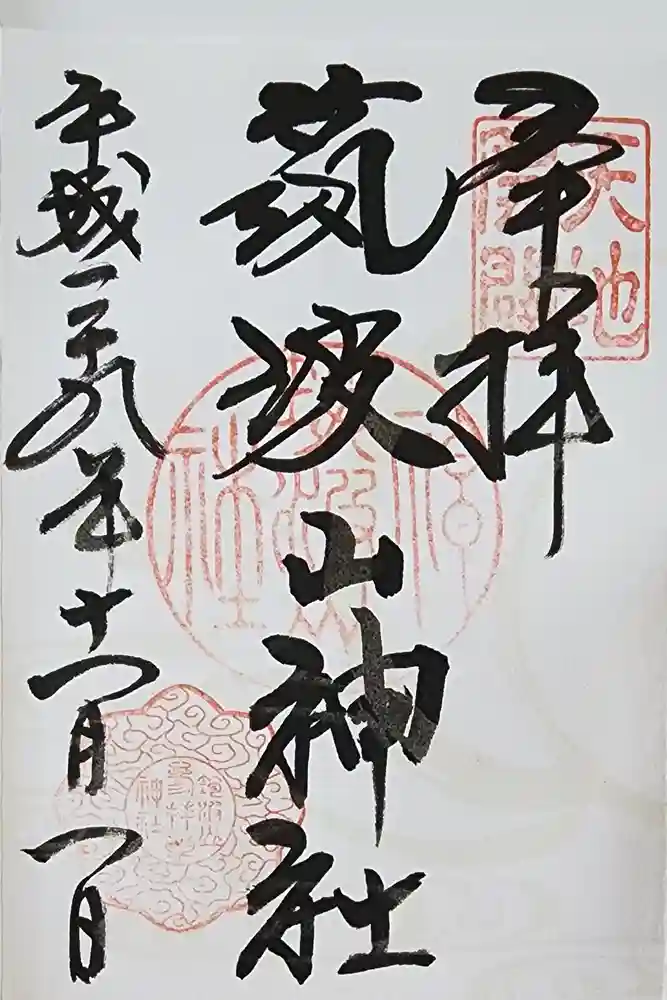 奉拝
天地
開闢
筑波山神社
筑波山神社
平成二十九年十一月一日